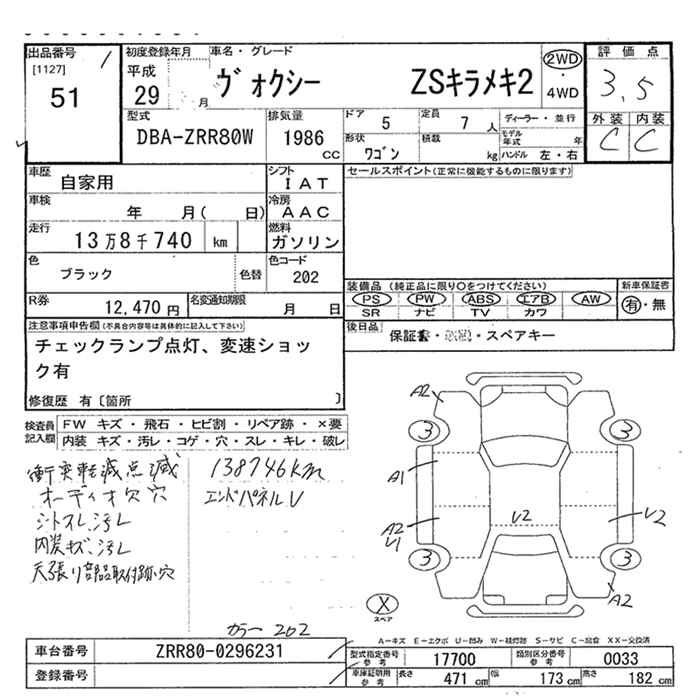 出品番号
[1127]
51
初度登録年月
平成
29
月
車名・グレード
ヴォクシー ZSキラメキ2
2WD
・
4WD
評価点
3.5
外装 内装
C C
型式
DBA-ZRR80W
排気量
1986
CC
ドア
5
定員
7 人
形状
ワゴン
積載
kg
ディーラー・並行
モデル年式 年
ハンドル 左・右
車歴
自家用
シフト
IAT
車検
年 月( 日)
冷房
AAC
走行
13万8千740 km
燃料
ガソリン
色
ブラック
色替
色コード
202
R券
12,470 円
名変通知期限
月 日
セールスポイント(正常に機能するものに限ります)
装備品 (純正品に限り○をつけてください)
PS PW ABS エアB AW
SR ナビ TV カワ
新車保証書
有・無
後日品
保証書・取説・スペアキー
注意事項申告欄(不具合内容等は具体的に記入して下さい)
チェックランプ点灯、変速ショッ
ク有
修復歴 有〔箇所 〕
検査員
記入欄
FW キズ・飛石・ヒビ割・リペア跡・×要
内装 キズ・汚レ・コゲ・穴・スレ・キレ・破レ
衝突軽減点滅
オーディオ欠 穴
シートスレ、汚レ
内装キズ、汚レ
天張リ部品取付跡、穴
138746km
エンドパネルU
カラー 202
A2
3
3
A1
A2
U1
U2
U2
3
3
A2
X
スペア
A-キズ E-エクボ U-凹み W-補修跡 S-サビ C-腐食 XX-交換済
車台番号
ZRR80-0296231
登録番号
型式指定番号
参考
17700
類別区分番号
参考
0033
車庫証明用
参考
長さ
471 cm
幅
173 cm
高さ
182 cm